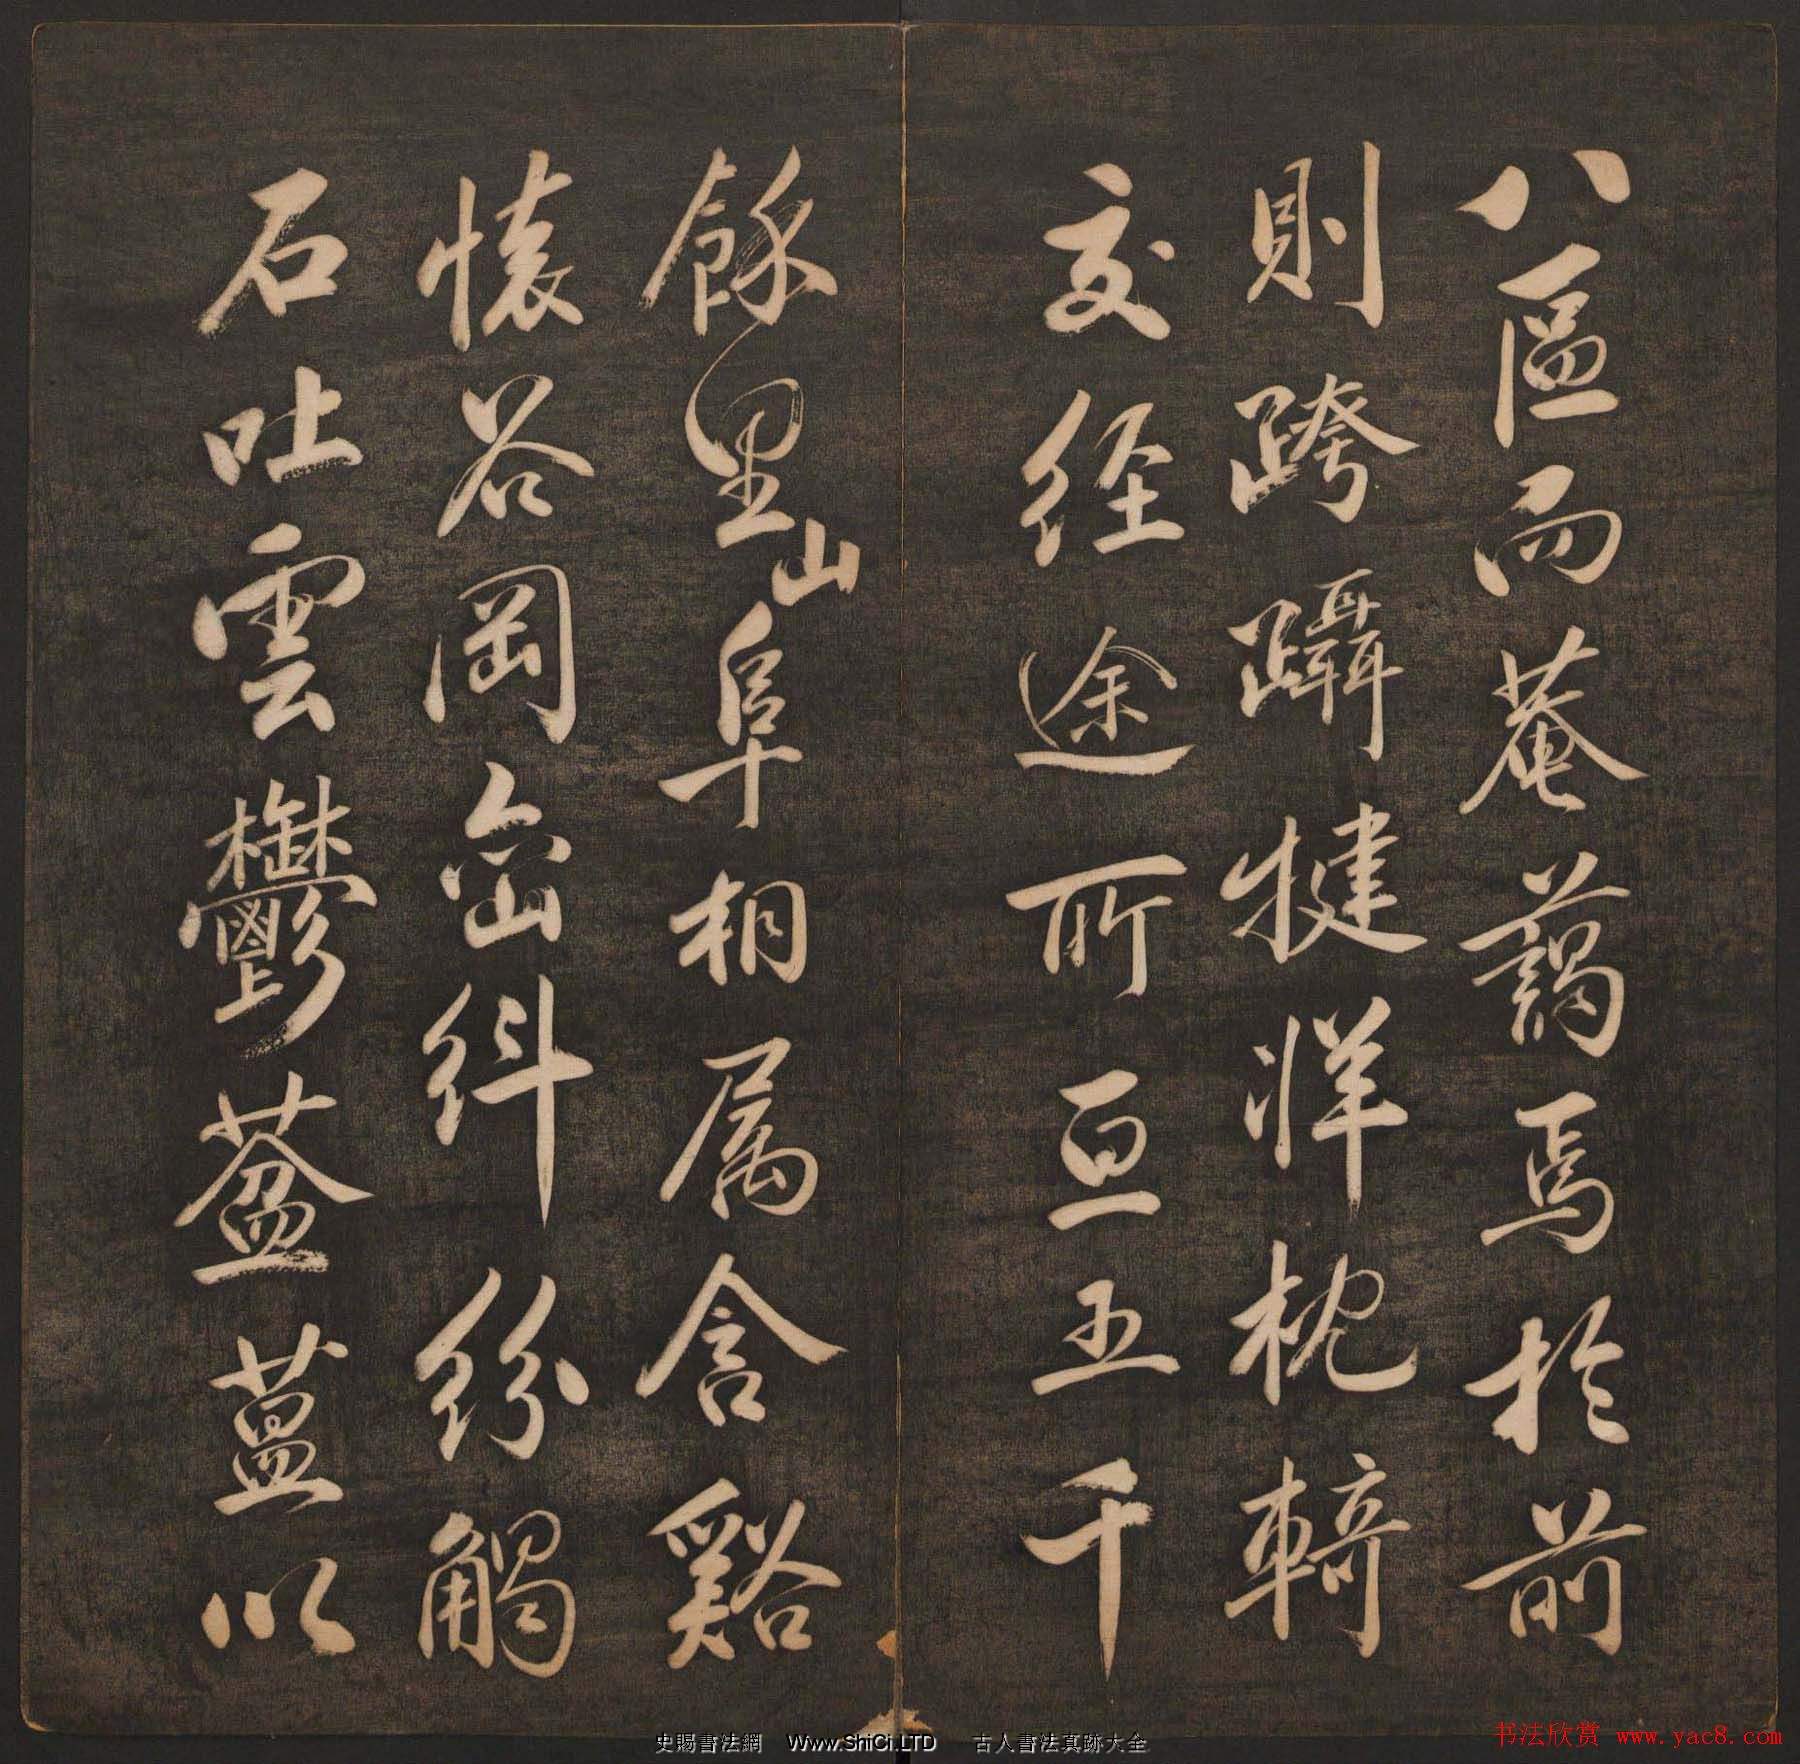 八區而菴藹焉於前
則跨躡犍牂枕輢
交經途所亘五千
餘里山阜相属含谿
懷谷岡巒糾紛觸
石吐雲鬱葐蒀以
史賜書法網 Www.ShiCi.LTD 古人書法真跡大全
书法欣赏 www.yac8.com